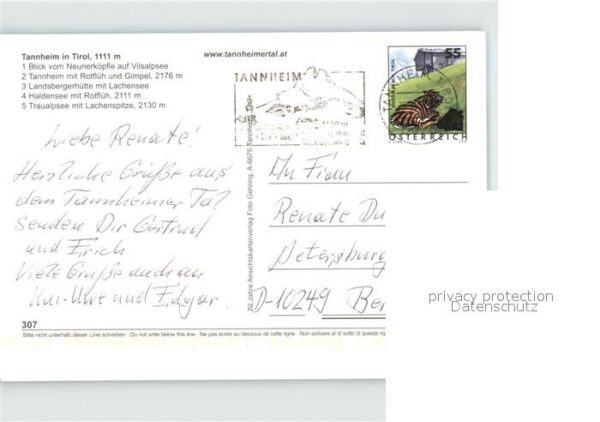 Tannheim in Tirol, 1111 m
1 Blick vom Neunerköpfle auf Vilsalpsee
2 Tannheim mit Rotflüh und Gimpel, 2176 m
3 Landsbergerhütte mit Lachensee
4 Haldensee mit Rotflüh, 2111 m
5 Traualpsee mit Lachenspitze, 2130 m
www.tannheimertal.at
TANNHEIM
55
ÖSTERREICH
Liebe Renate!
Herzliche Grüße aus
dem Tannheimer Tal
senden Dir Gertrud
und Erich.
Viele Grüße auch an
und
70 Jahre Ansichtskartenverlag Foto Gehring, A-6675 Tannheim
An Frau
Renate
Petersburg
D-10249 Be
307
Bitte nicht unterhalb dieser Linie schreiben · Do not write below this line · Ne pas écrire au dessous de cette ligne · Non scrivere al di sotto di questa rig
privacy protection
Datenschutz